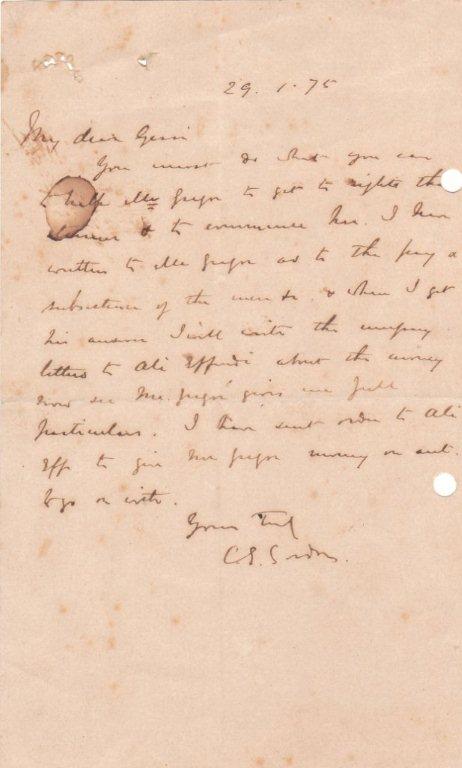 29. 1. 75
My dear Gessi
You must do what you can
to help McGregor to get to rights the
steamer & to commence her. I have
written to McGregor as to the pay &
subsistence of the men &c. & when I get
his answer I will write the necessary
letters to Ali Effendi about the money
now see McGregor gives me full
particulars. I have sent order to Ali
Eff to give McGregor money on act.
to go on with.
Yours
C.E. Gordon.